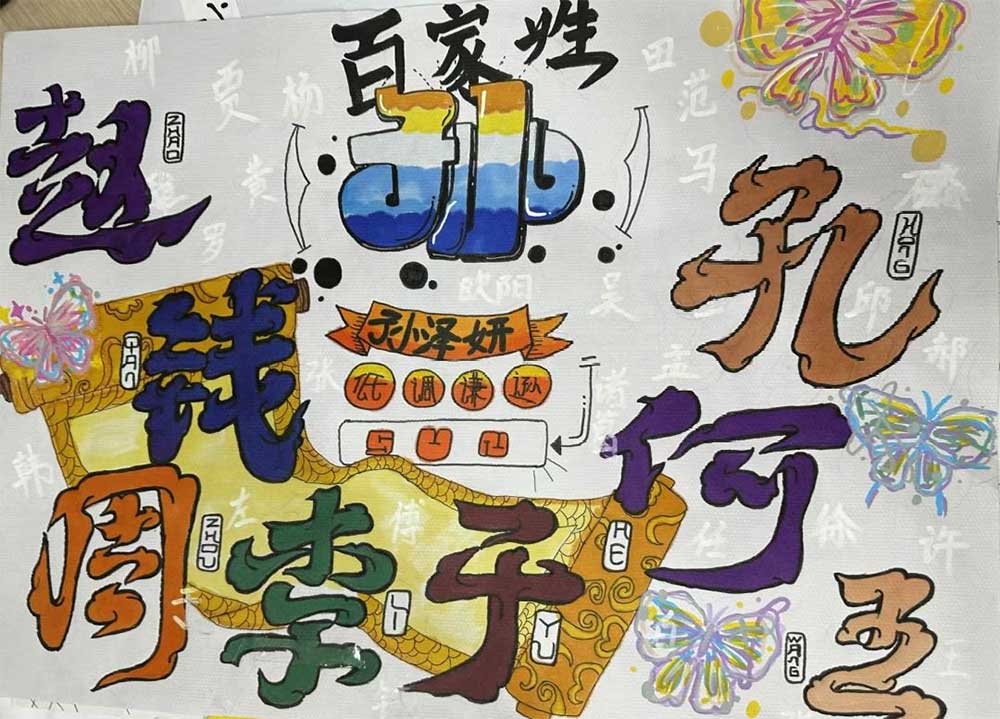 百家姓
柳
贾
杨
田
范
赵
ZHAO
孙
马
孔
KONG
黄
罗
欧阳
吴
邱
钱
QIAN
孙泽妍
孟
郝
张
低调谦逊
诸葛
SUN
韩
何
HE
周
ZHOU
左
李
LI
傅
于
YU
任
徐
许
王
WANG